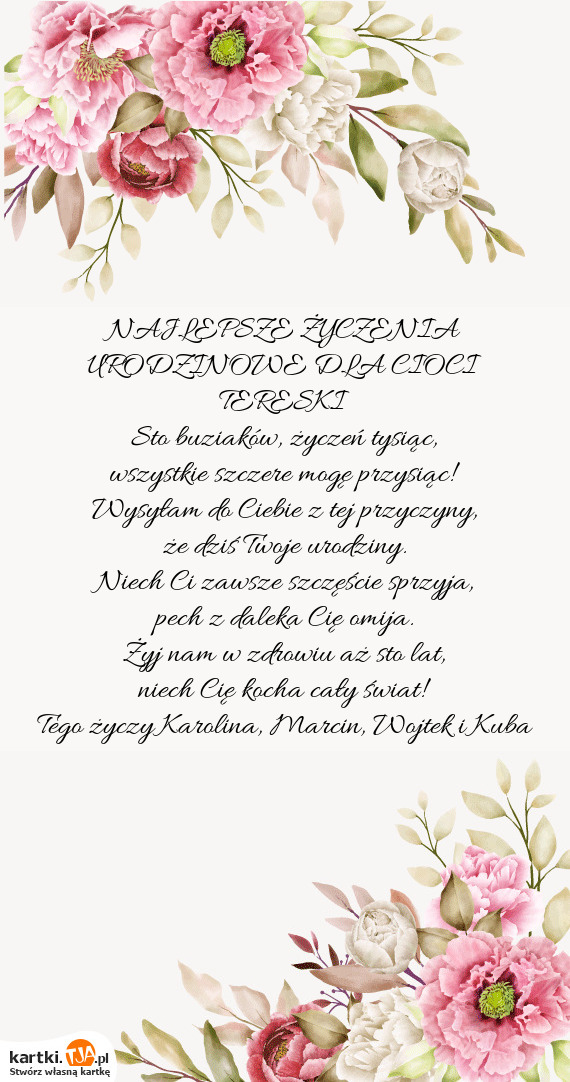 NAJLEPSZE ŻYCZENIA
URODZINOWE DLA CIOCI
TERESKI
Sto buziaków, życzeń tysiąc,
wszystkie szczere mogę przysiąc!
Wysyłam do Ciebie z tej przyczyny,
że dziś Twoje urodziny.
Niech Ci zawsze szczęście sprzyja,
pech z daleka Cię omija.
Żyj nam w zdrowiu aż sto lat,
niech Cię kocha cały świat!
Tego życzy Karolina, Marcin, Wojtek i Kuba
kartki.TJA.pl
Stwórz własną kartkę